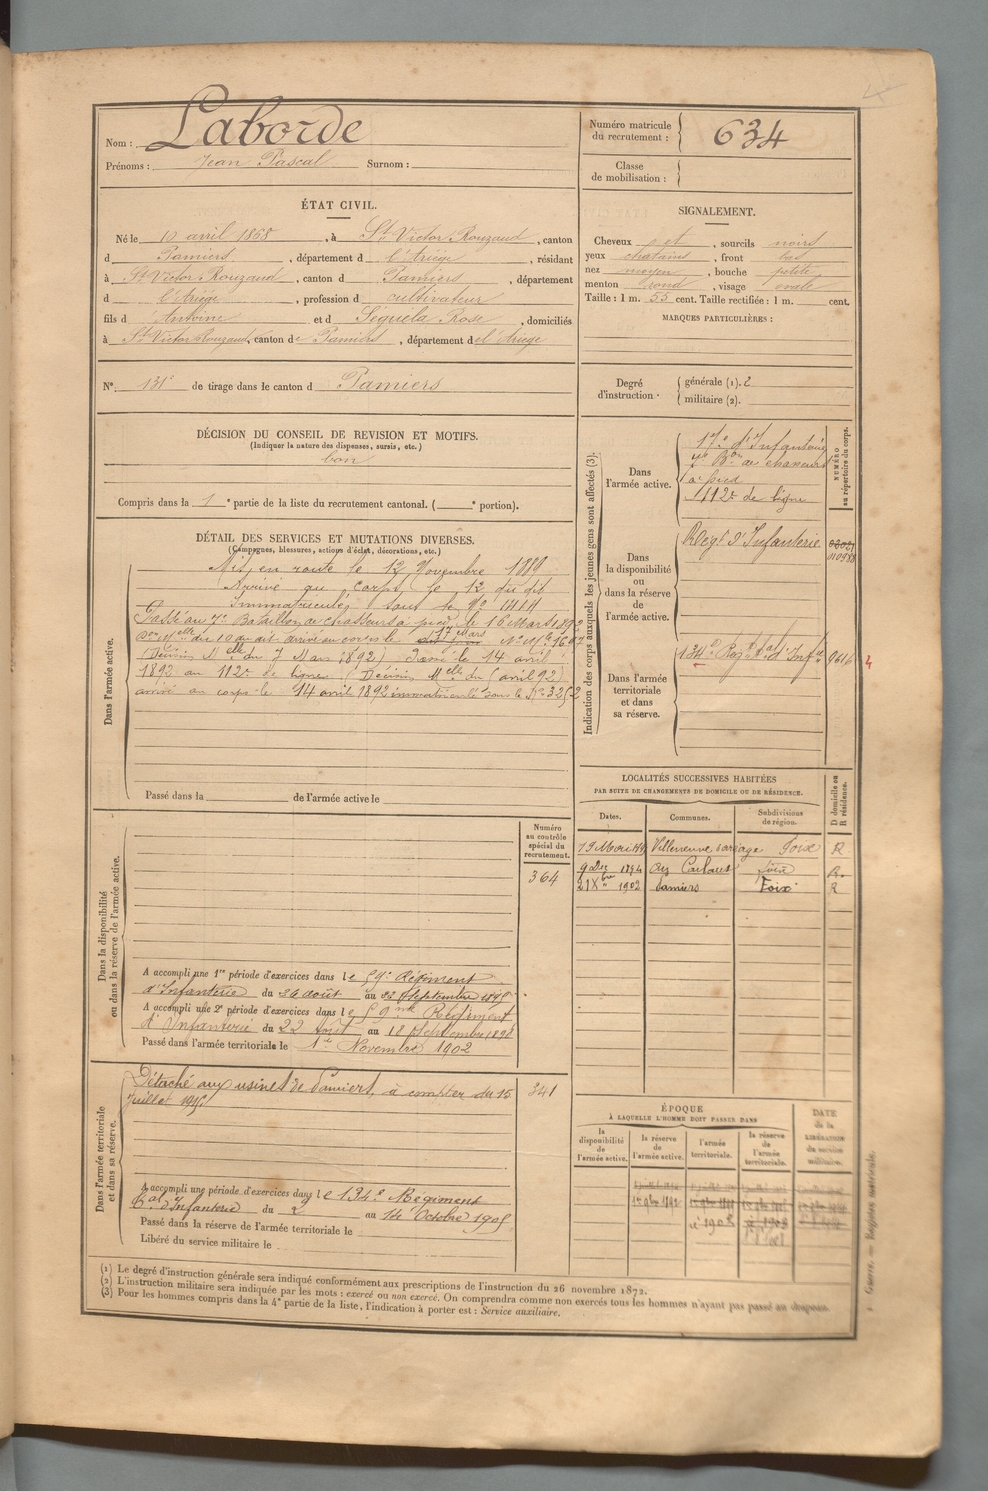 Nom : Laborde
Prénoms : Jean Pascal Surnom :
Numéro matricule
du recrutement : 634
Classe
de mobilisation :
ÉTAT CIVIL.
Né le 10 avril 1868, à St Victor Rouzaud, canton
d Pamiers, département d l'Ariège, résidant
à St Victor Rouzaud, canton d Pamiers, département
d l'Ariège, profession d cultivateur
fils d Antoine et d Séguéla Rose, domiciliés
à St Victor Rouzaud, canton de Pamiers, département de l'Ariège
SIGNALEMENT.
Cheveux et, sourcils noirs
yeux chatains, front bas
nez moyen, bouche petite
menton rond, visage ovale
Taille : 1 m. 55 cent. Taille rectifiée : 1 m. cent.
MARQUES PARTICULIÈRES :
N°. 131 de tirage dans le canton d Pamiers
Degré
d'instruction.
générale (1). 2
militaire (2).
DÉCISION DU CONSEIL DE REVISION ET MOTIFS.
(Indiquer la nature des dispenses, sursis, etc.)
bon
Compris dans la 1e partie de la liste du recrutement cantonal. ( e portion).
DÉTAIL DES SERVICES ET MUTATIONS DIVERSES.
(Campagnes, blessures, actions d'éclat, décorations, etc.)
Dans l'armée active.
Mis en route le 12 Novembre 1889
Arrivé au corps le 12 du dit
Immatriculé sous le N° 1414
Passé au 7e Bataillon de chasseurs à pied le 16 Mars 1892
Don Melle du 10 du dit arrivé au corps le 17 Mars N° Mle
(Décision Melle du 7 Mars 1892) Passé le 14 avril
1892 au 112e de ligne (Décision Melle du avril 92)
arrivé au corps le 14 avril 1892 immatriculé sous le N° 3252
Passé dans la de l'armée active le
Indication des corps auxquels les jeunes gens sont affectés (3).
NUMÉRO
au répertoire du corps.
Dans
l'armée active.
17e d'Infanterie
7e Bon de chasseurs
à pied
112e de ligne
Dans
la disponibilité
ou
dans la réserve
de
l'armée active.
Regt d'Infanterie
Dans l'armée
territoriale
et dans
sa réserve.
134e Regt tal d'Infie 9616
4
LOCALITÉS SUCCESSIVES HABITÉES
PAR SUITE DE CHANGEMENTS DE DOMICILE OU DE RÉSIDENCE.
D domicile ou
R résidence.
Dates. Communes. Subdivisions
de région.
Villeneuve Foix R
9 1894 aux Cabannes Foix R.
21 Xbre 1902 Pamiers Foix R
Dans la disponibilité
ou dans la réserve de l'armée active.
Numéro
au contrôle
spécial du
recrutement.
364
A accompli une 1re période d'exercices dans le 59e Régiment
d'Infanterie du 26 août au 22 Septembre 1895
A accompli une 2e période d'exercices dans le 59me Régiment
d'Infanterie du 22 Août au 18 Septembre 1898
Passé dans l'armée territoriale le 1er Novembre 1902
Dans l'armée territoriale
et dans sa réserve.
Détaché aux usines de Pamiers, à compter du 15
Juillet 1915
341
A accompli une période d'exercices dans le 134e Régiment
tal d'Infanterie du 2 au 14 Octobre 1905
Passé dans la réserve de l'armée territoriale le
Libéré du service militaire le
ÉPOQUE
À LAQUELLE L'HOMME DOIT PASSER DANS
la
disponibilité
de
l'armée active.
la réserve
de
l'armée active.
l'armée
territoriale.
la réserve
de
l'armée
territoriale.
DATE
de la
LIBÉRATION
du service
militaire.
(1) Le degré d'instruction générale sera indiqué conformément aux prescriptions de l'instruction du 26 novembre 1872.
(2) L'instruction militaire sera indiquée par les mots : exercé ou non exercé. On comprendra comme non exercés tous les hommes n'ayant pas passé au drapeau.
(3) Pour les hommes compris dans la 4e partie de la liste, l'indication à porter est : Service auxiliaire.
Guerre. — Registre matricule.